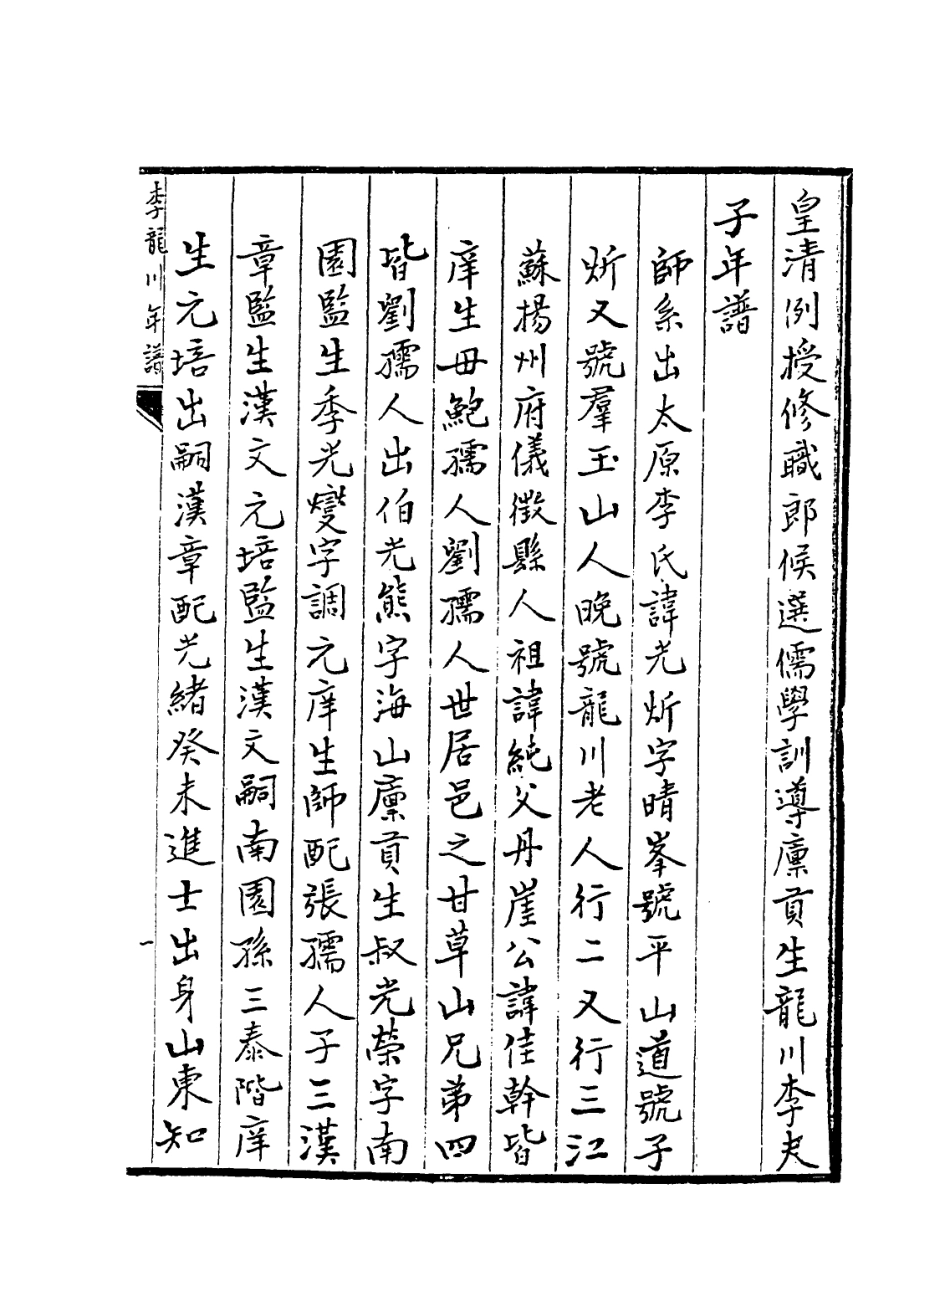 皇清例授修職郎候選儒學訓導廩貢生龍川李夫
子年譜
師系出太原李氏諱光炘字晴峯號平山道號子
炘又號羣玉山人晚號龍川老人行二又行三江
蘇揚州府儀徵縣人祖諱純父丹崖公諱佳幹皆
庠生毋鮑孺人劉孺人世居邑之甘草山兄弟四
皆劉孺人出伯光熊字海山廩貢生叔光榮字南
園監生季光燮字調元庠生師配張孺人子三漢
章監生漢文元培監生漢文嗣南園孫三泰階庠
生元培出嗣漢章配光緒癸未進士出身山東知
李龍川年譜
一